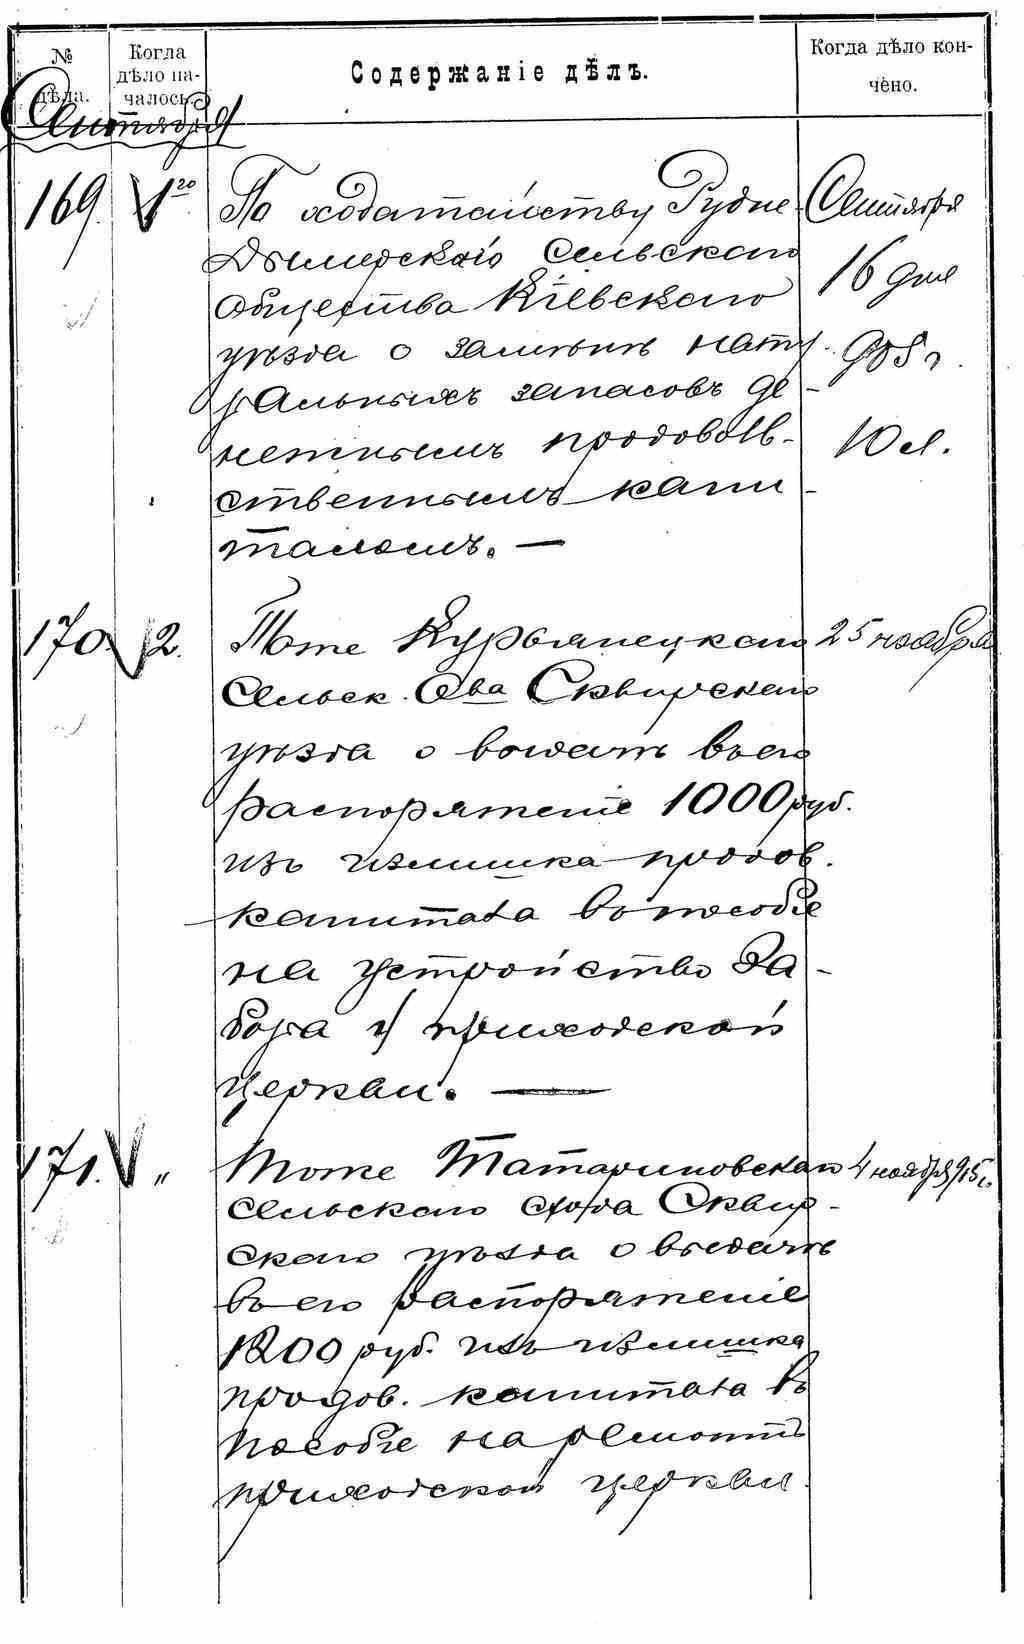 № дѣла.
Когда дѣло на-
чалось.
Содержаніе дѣлъ.
Когда дѣло кон-
чено.
Сентября
169. 1 20 По ходатайству Рудне- Сентября
Дымерскаго Сельскаго
общества Кіевскаго 16 дня
уѣзда о замѣнѣ нату- 905 г.
ральныхъ запасовъ де-
нежнымъ продоволь- 10 л.
ственнымъ капи-
таломъ. —
170. 2. Тоже Курьянецкаго 25 ноября
Сельск. О-ва Сквирскаго
уѣзда о выдачѣ въ его
распоряженіе 1000 руб.
изъ излишка продов.
капитала въ пособіе
на устройство за-
бора у приходской
церкви. —
171. " Тоже Татариновскаго 4 ноября 915 г.
сельскаго схода Сквир-
скаго уѣзда о выдачѣ
въ его распоряженіе
1200 руб. изъ излишка
продов. капитала въ
пособіе на ремонтъ
приходской церкви.